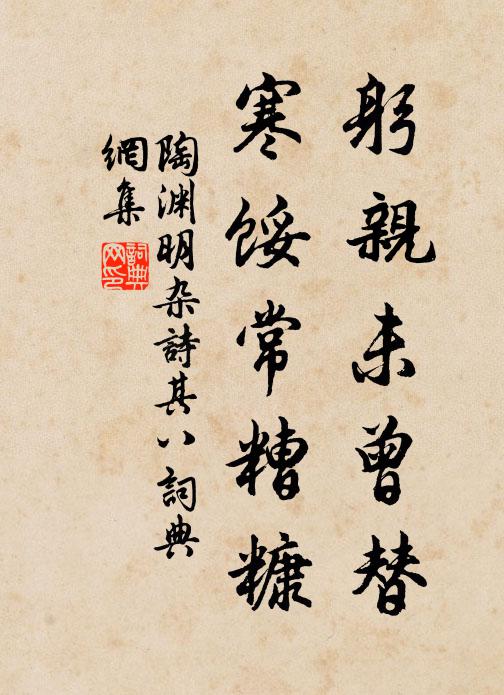 躬親未曾替
寒餒常糟糠
陶渊明杂詩其八詞典
網集
詞典網印